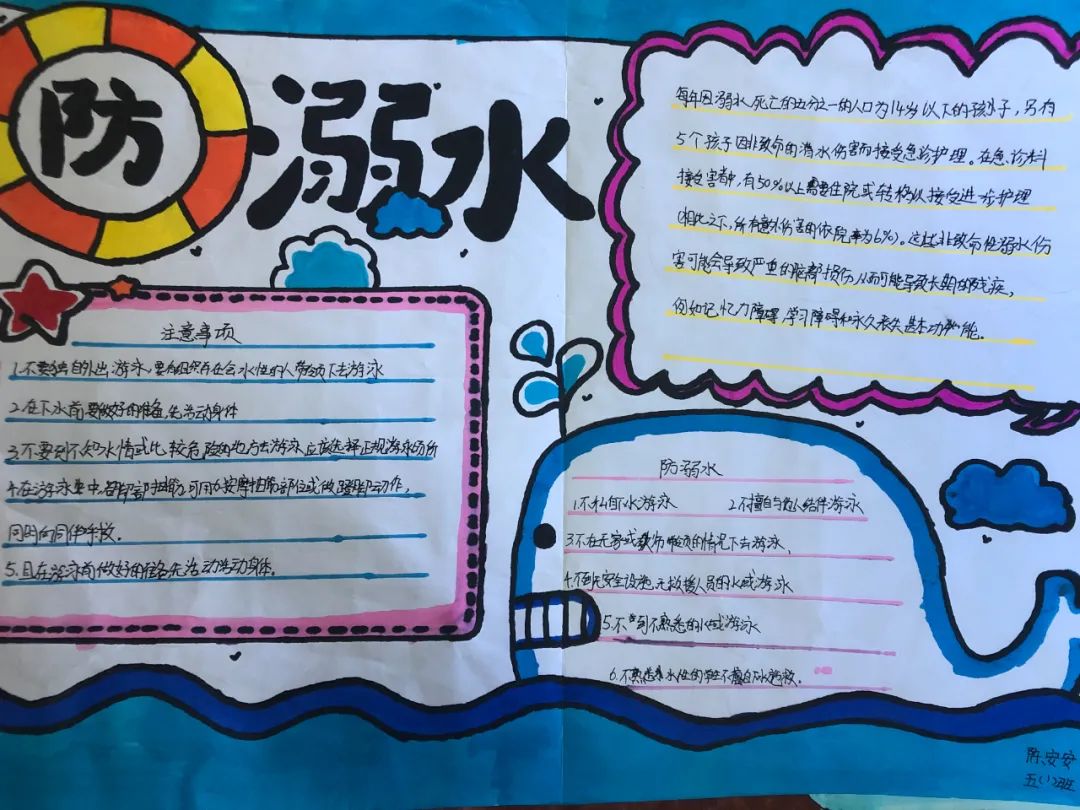 防溺水
每年因溺水死亡的五分之一的人口为14岁以下的孩子，另有
5个孩子因非致命的溺水伤害而接受急诊护理。在急诊科
接受害者中，有50%以上需要住院或转移以接受进一步护理
(相比之下，所有意外伤害的住院率为6%)。这些非致命性溺水伤
害可能会导致严重的脑部损伤，从而可能导致长期的残疾，
例如记忆力障碍，学习障碍和永久丧失基本功能。
注意事项
1.不要独自外出游泳，要有组织在会水性的人带领下去游泳
2.在下水前要做好准备，先活动身体
3.不要到不知水情或比较危险的地方去游泳应该选择正规游泳场所
4.在游泳中，若脚部抽搐，可用力按摩部位或做蹬脚动作，
同时向同伴呼救。
5.且在游泳前做好准备先活动活动身体。
防溺水
1.不私自下水游泳
2.不擅自与他人结伴游泳
3.不在无家或教师带领的情况下去游泳，
4.不到无安全设施，无救援人员的水域游泳
5.不到不熟悉的水域游泳
6.不熟悉水性的学生不擅自下水施救。
陈安安
五(1)班